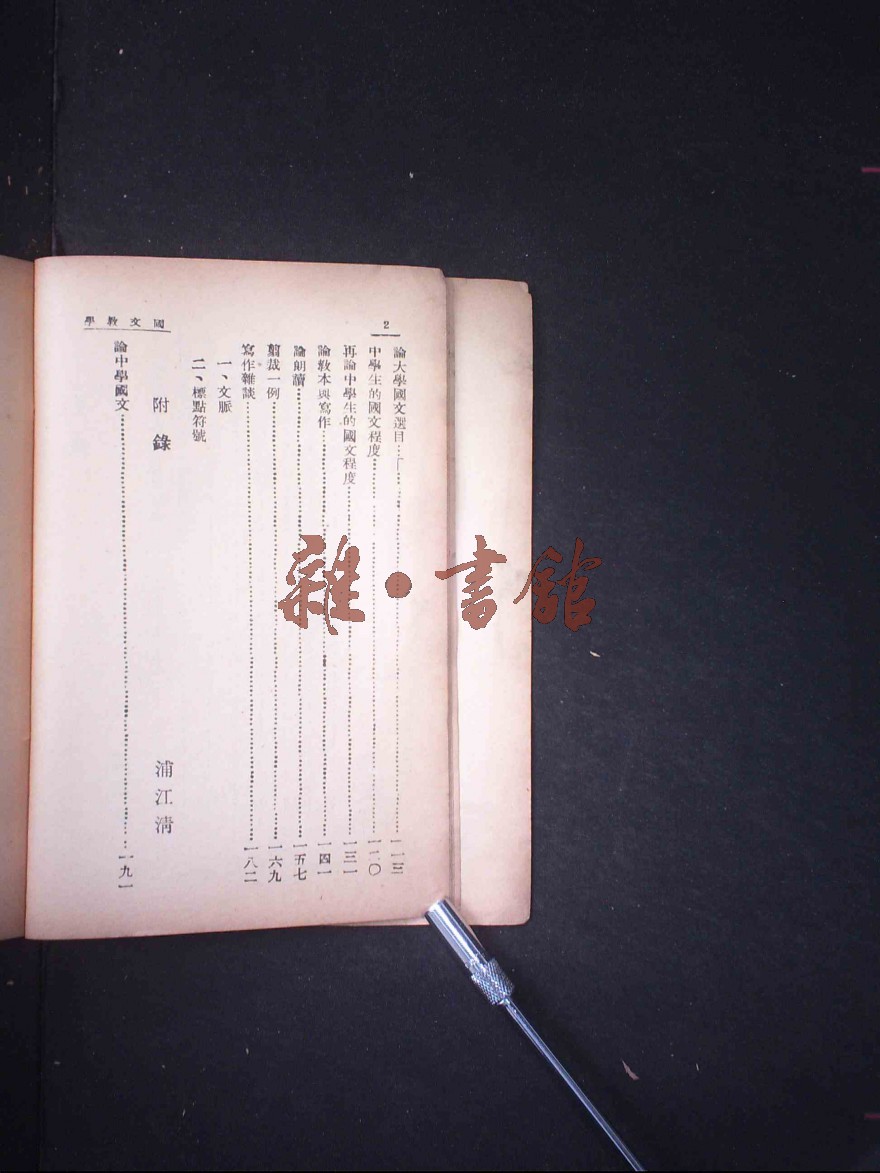 2
論大學國文選目……一一三
中學生的國文程度……一二〇
再論中學生的國文程度……一三一
論教本與寫作……一四一
論朗讀……一五七
剪裁一例……一六九
寫作雜談……一八二
一、文脈
二、標點符號
附錄 浦江清
論中學國文……一九一
國文教學
雜·書館